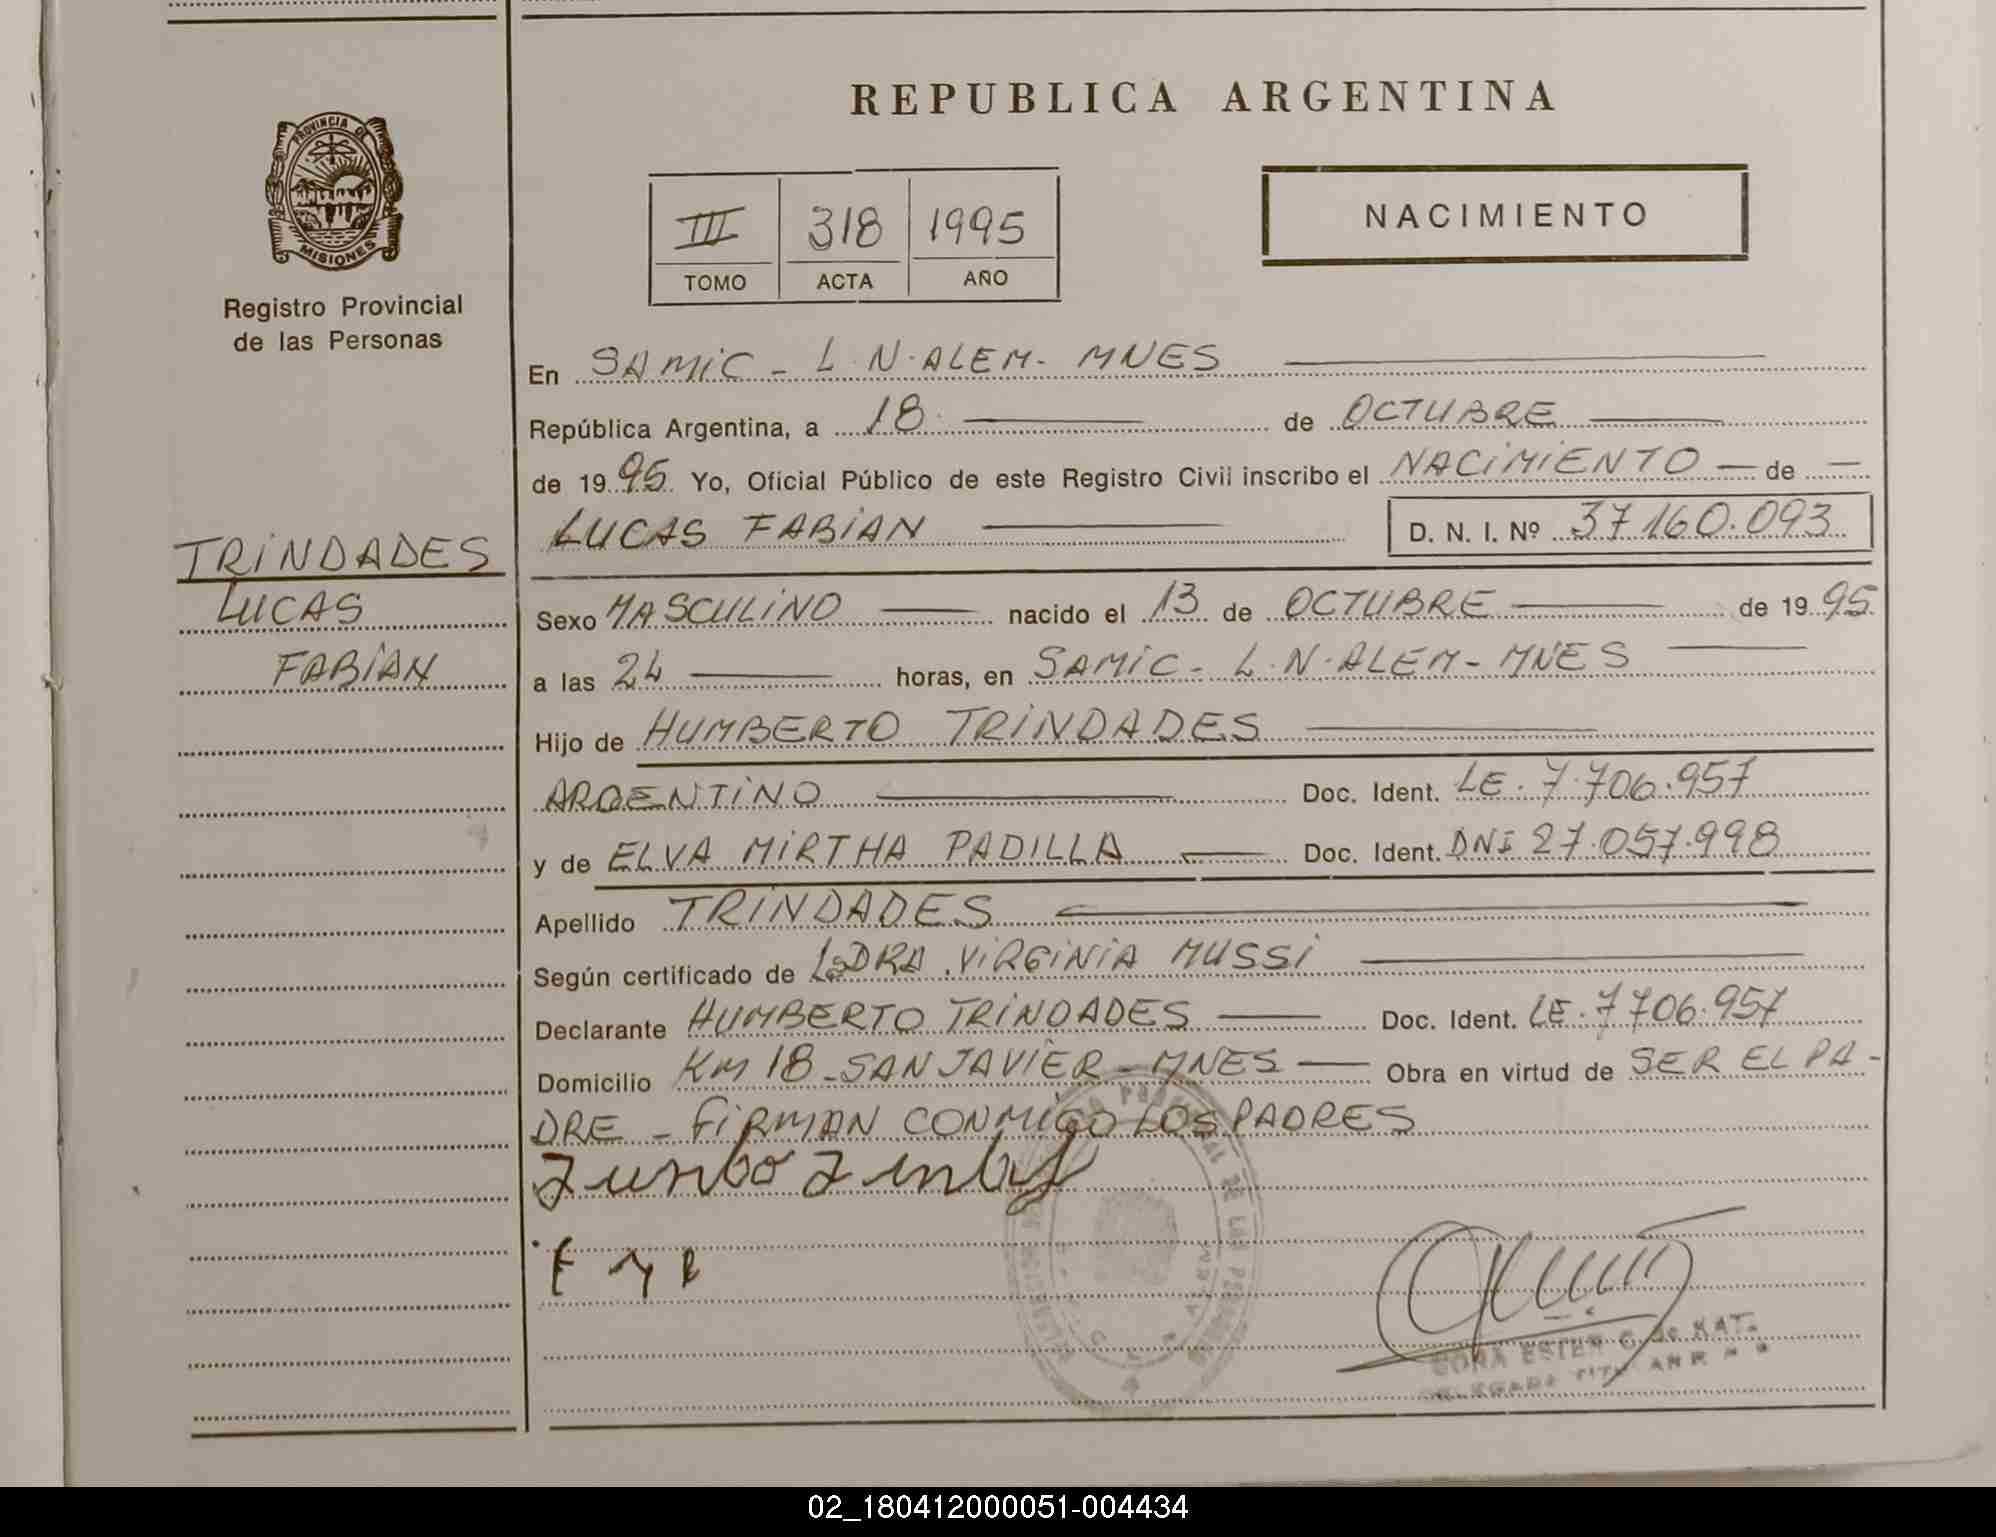 REPUBLICA ARGENTINA
PROVINCIA DE
MISIONES
Registro Provincial
de las Personas
III 318 1995
TOMO ACTA AÑO
NACIMIENTO
En SAMIC - L.N. ALEM - MNES
República Argentina, a 18 de OCTUBRE
de 1995 Yo, Oficial Público de este Registro Civil inscribo el NACIMIENTO de
LUCAS FABIAN D. N. I. Nº 37160.093
TRINDADES
LUCAS
FABIAN
Sexo MASCULINO nacido el 13 de OCTUBRE de 1995
a las 24 horas, en SAMIC - L.N. ALEM - MNES
Hijo de HUMBERTO TRINDADES
ARGENTINO Doc. Ident. LE. 7.706.957
y de ELVA MIRTHA PADILLA Doc. Ident. DNI 27.057.998
Apellido TRINDADES
Según certificado de DRA. VIRGINIA MUSSI
Declarante HUMBERTO TRINDADES Doc. Ident. LE. 7706.957
Domicilio KM 18 - SAN JAVIER - MNES Obra en virtud de SER EL PA-
DRE - FIRMAN CONMIGO LOS PADRES
02_180412000051-004434